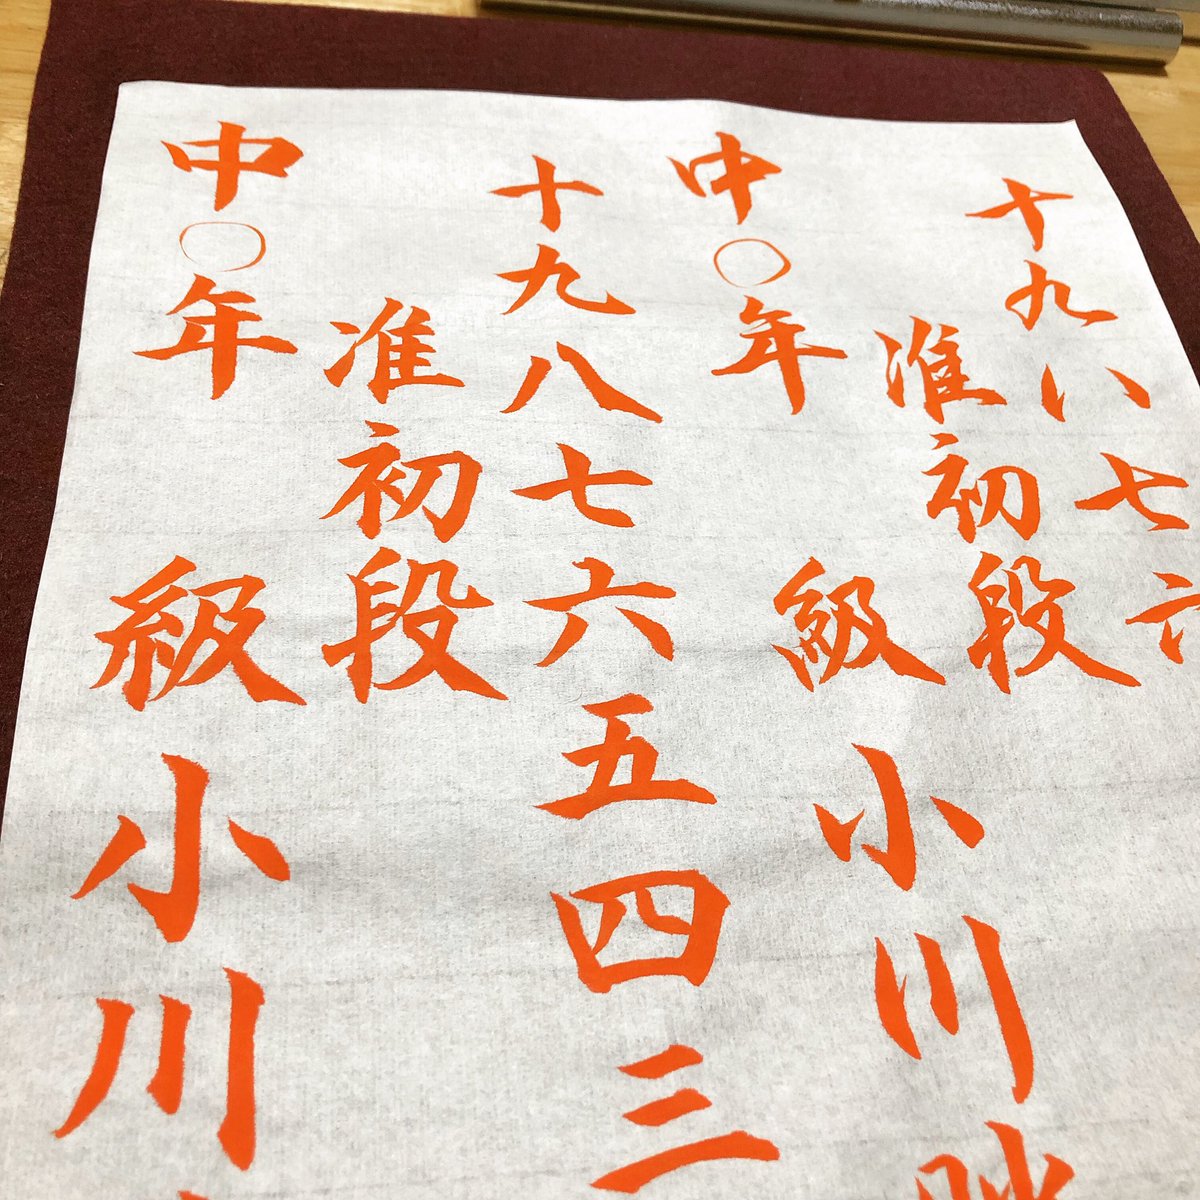 十九八七六
准初段
中〇年 級 小川
十九八七六五四三
准初段
中〇年 級 小川